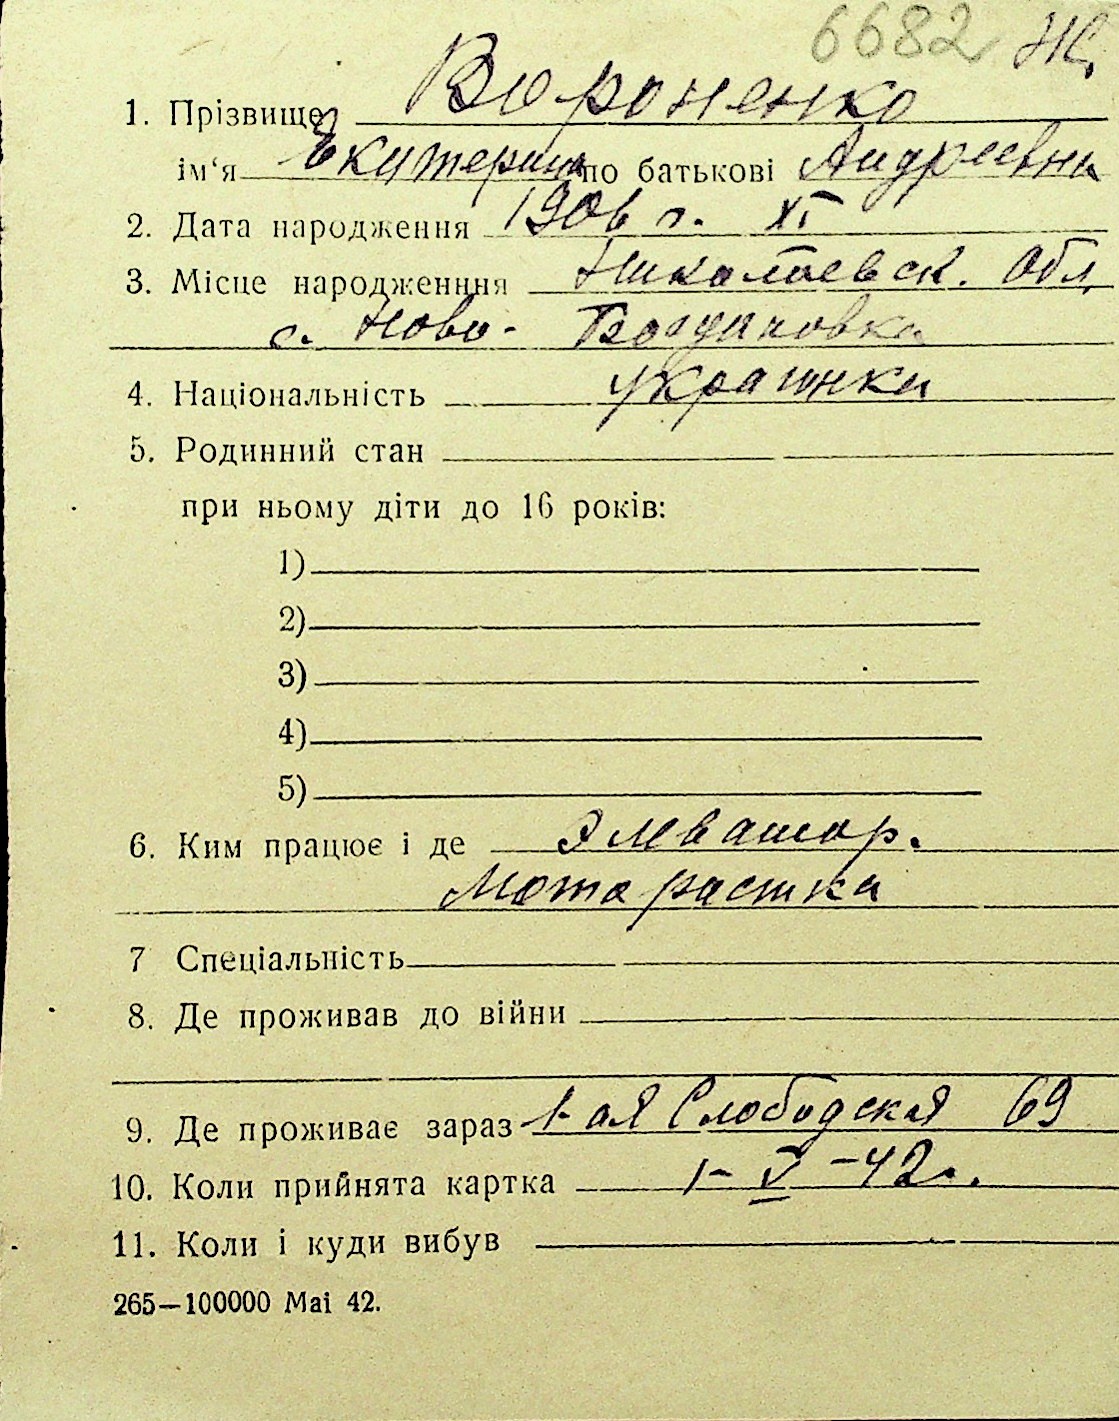 6682 Ж.
1. Прізвище Вороненко
ім‘я Екатерина по батькові Андреевна
2. Дата народження 1906 г. XI
3. Місце народженння Николаевск. Обл.
с. Ново- Богдановка
4. Національність украинка
5. Родинний стан
при ньому діти до 16 років:
1)
2)
3)
4)
5)
6. Ким працює і де Элеватор.
Мотористка
7 Спеціальність
8. Де проживав до війни
9. Де проживає зараз 1-ая Слободская 69
10. Коли прийнята картка 1-V-42г.
11. Коли і куди вибув
265—100000 Mai 42.